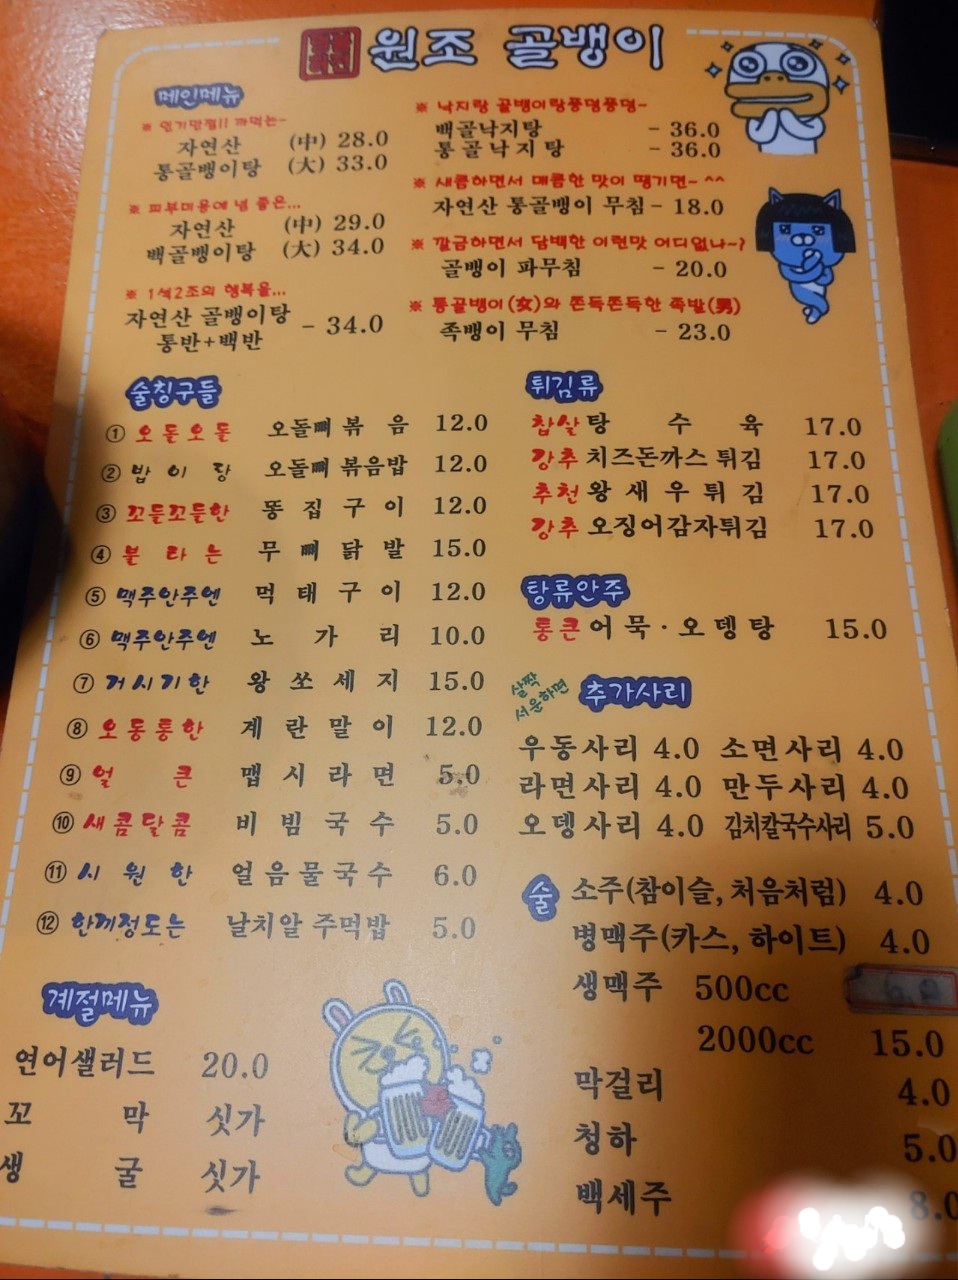 원조 골뱅이
메인메뉴
※ 인기만점!! 까먹는~
자연산 (中) 28.0
통골뱅이탕 (大) 33.0
※ 피부미용에 넘 좋은...
자연산 (中) 29.0
백골뱅이탕 (大) 34.0
※ 1석2조의 행복을...
자연산 골뱅이탕
통반+백반 - 34.0
※ 낙지랑 골뱅이랑퐁덩퐁덩~
백골낙지탕 - 36.0
통골낙지탕 - 36.0
※ 새콤하면서 매콤한 맛이 땡기면~ ^^
자연산 통골뱅이 무침 - 18.0
※ 깔끔하면서 담백한 이런맛 어디없나~?
골뱅이 파무침 - 20.0
※ 통골뱅이(女)와 쫀득쫀득한 족발(男)
족뱅이 무침 - 23.0
술칭구들
① 오돌오돌 오돌뼈볶음 12.0
② 밥이랑 오돌뼈볶음밥 12.0
③ 꼬들꼬들한 똥집구이 12.0
④ 불라는 무뼈닭발 15.0
⑤ 맥주안주엔 먹태구이 12.0
⑥ 맥주안주엔 노가리 10.0
⑦ 거시기한 왕쏘세지 15.0
⑧ 오동통한 계란말이 12.0
⑨ 얼큰 맵시라면 5.0
⑩ 새콤달콤 비빔국수 5.0
⑪ 시원한 얼음물국수 6.0
⑫ 한끼정도는 날치알 주먹밥 5.0
계절메뉴
연어샐러드 20.0
꼬막 싯가
생굴 싯가
튀김류
찹쌀탕수육 17.0
강추 치즈돈까스튀김 17.0
추천 왕새우튀김 17.0
강추 오징어감자튀김 17.0
탕류안주
통큰어묵·오뎅탕 15.0
살짝
서운하면
추가사리
우동사리 4.0 소면사리 4.0
라면사리 4.0 만두사리 4.0
오뎅사리 4.0 김치칼국수사리 5.0
술
소주(참이슬,처음처럼) 4.0
병맥주(카스, 하이트) 4.0
생맥주 500cc
2000cc 15.0
막걸리 4.0
청하 5.0
백세주 8.0